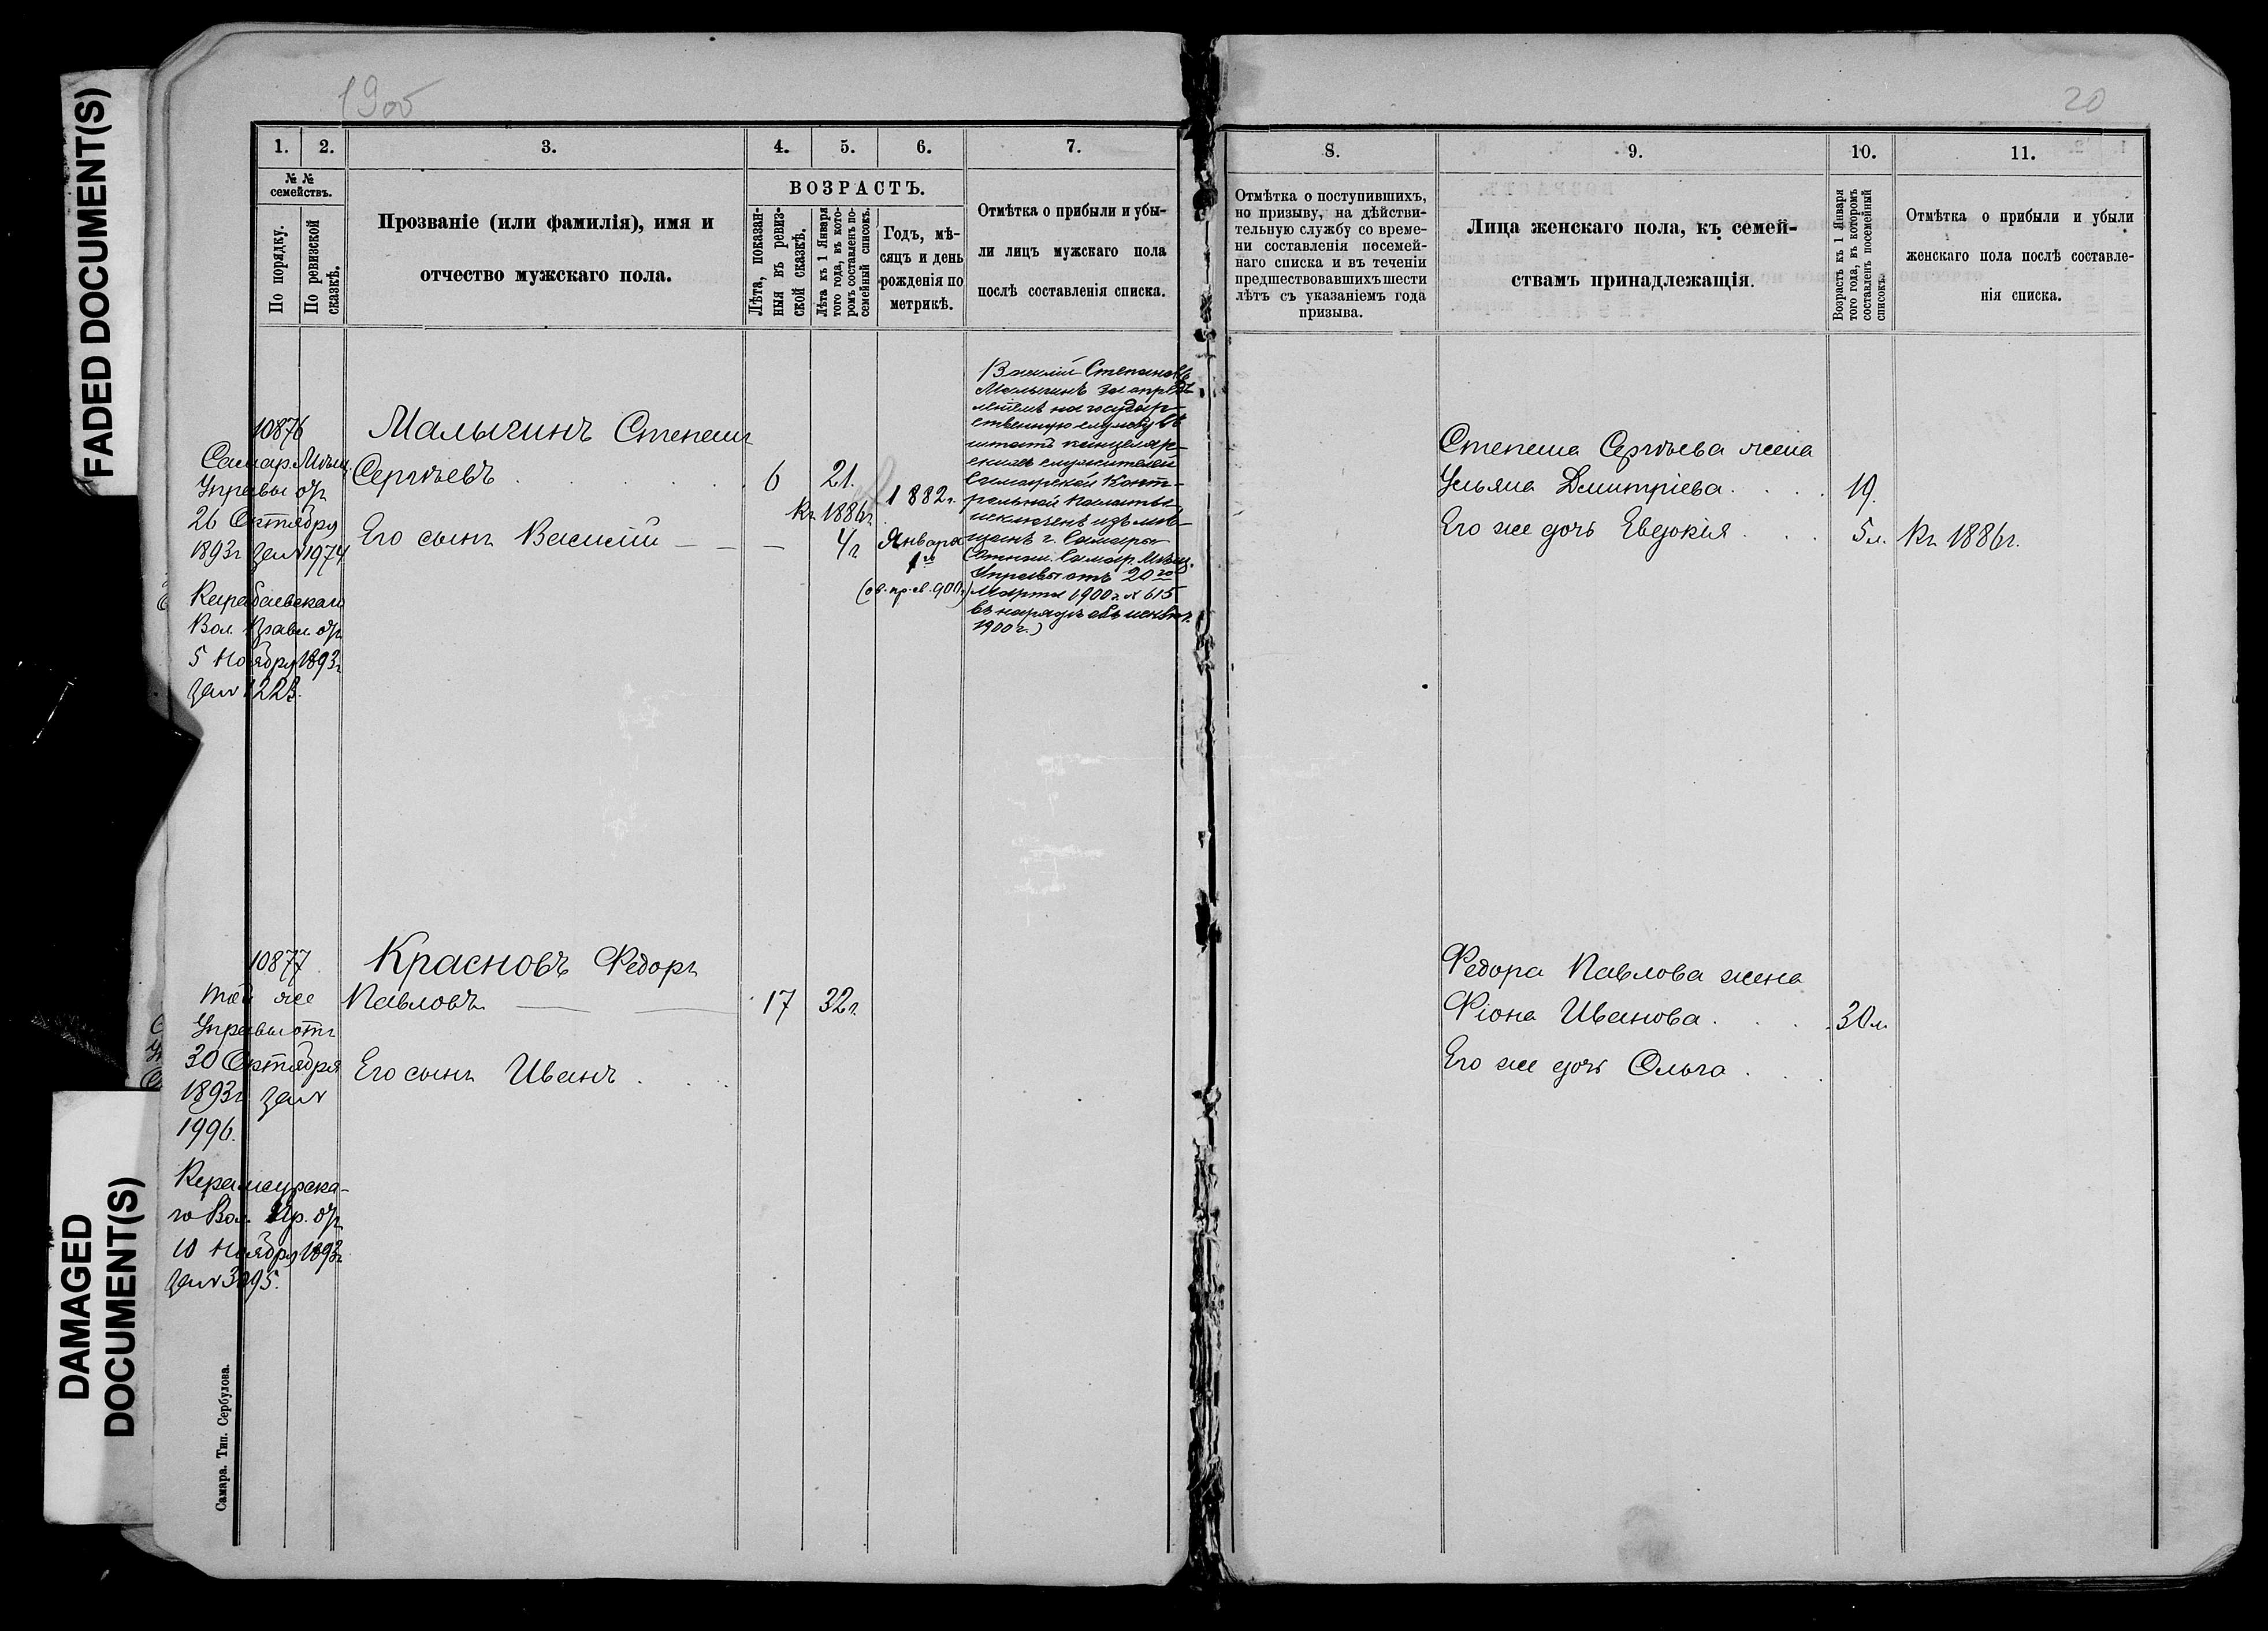 FADED DOCUMENT(S)
DAMAGED
DOCUMENT(S)
1900
1.
2.
3.
4.
5.
6.
7.
№ №
семействъ.
По порядку.
По ревизской
сказкѣ.
Прозваніе (или фамилія), имя и
отчество мужскаго пола.
ВОЗРАСТЪ.
Лѣта, показан-
ныя въ ревиз-
ской сказкѣ.
Лѣта къ 1 Января
того года, въ кото-
ромъ составленъ по-
семейный списокъ.
Годъ, мѣ-
сяцъ и день
рожденія по
метрикѣ.
Отмѣтка о прибыли и убы-
ли лицъ мужскаго пола
послѣ составленія списка.
10876
Самар. Мѣщ.
Управы отъ
26 Октября
1893г за № 1974
Вол. Правл. отъ
5 Ноября 1893г
за № 1223.
Малыгинъ Степанъ
Сергѣевъ
6
21.
Его сынъ Василій
къ 1886г.
4г
1882г.
Января
1го
Василій Степановъ
Малыгинъ за опредѣ-
леніемъ на государ-
ственную службу въ
штатъ канцеляр-
скихъ служителей
Самарской Конт-
рольной Палаты
исключенъ изъ мѣ-
щанъ г. Самары
(Отнош. Самар. Мѣщ.
Управы отъ 20го
Марта 1900 г. № 615
въ нарядѣ объ исключ.
1900 г.)
10877
Той же
Управы отъ
30 Октября
1893г за №
1996.
го Вол. Пр. отъ
10 Ноября 1893г
за № 3095.
Красновъ Федоръ
Павловъ
17
32г.
Его сынъ Иванъ
Самара. Тип. Сербулова.
20
8.
9.
10.
11.
Отмѣтка о поступившихъ,
но призыву, на дѣйстви-
тельную службу со време-
ни составленія посемей-
наго списка и въ теченіи
предшествовавшихъ шести
лѣтъ съ указаніемъ года
призыва.
Лица женскаго пола, къ семей-
ствамъ принадлежащія.
Возрастъ къ 1 Января
того года, въ которомъ
составленъ посемейный
списокъ.
Отмѣтка о прибыли и убыли
женскаго пола послѣ составле-
нія списка.
Степана Сергѣева жена
Ульяна Дмитріева
19.
Его же дочь Евдокія
5 л.
къ 1886г.
Федора Павлова жена
Фіона Иванова
30 л.
Его же дочь Ольга